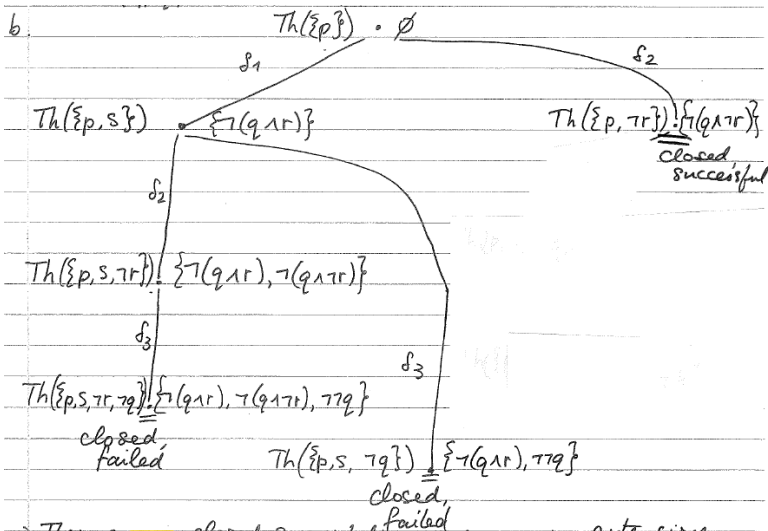 b.
Th({p}) . ∅
δ1
δ2
Th({p,s}) {¬(q∧r)}
Th({p,¬r}) {¬(q∧¬r)}
closed,
successful
δ2
Th({p,s,¬r}) {¬(q∧r),¬(q∧¬r)}
δ3
δ3
Th({p,s,¬r,¬q}) {¬(q∧r),¬(q∧¬r),¬¬q}
closed,
failed
Th({p,s,¬q}) {¬(q∧r),¬¬q}
closed,
failed